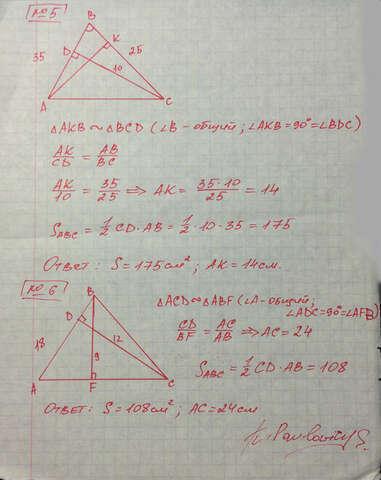 №5
B
D
K
35
25
10
A
C
△AKB ∾ △BCD (∠B - общий; ∠AKB = 90° = ∠BDC)
AK/CD = AB/BC
AK/10 = 35/25 ⟹ AK = 35·10/25 = 14
S_ABC = 1/2 CD · AB = 1/2 · 10 · 35 = 175
Ответ: S = 175 см²; AK = 14 см.
№6
B
D
18
12
9
A
F
C
△ACD ∾ △ABF (∠A - общий;
∠ADC = 90° = ∠AFB)
CD/BF = AC/AB ⟹ AC = 24
S_ABC = 1/2 CD · AB = 108
Ответ: S = 108 см²; AC = 24 см